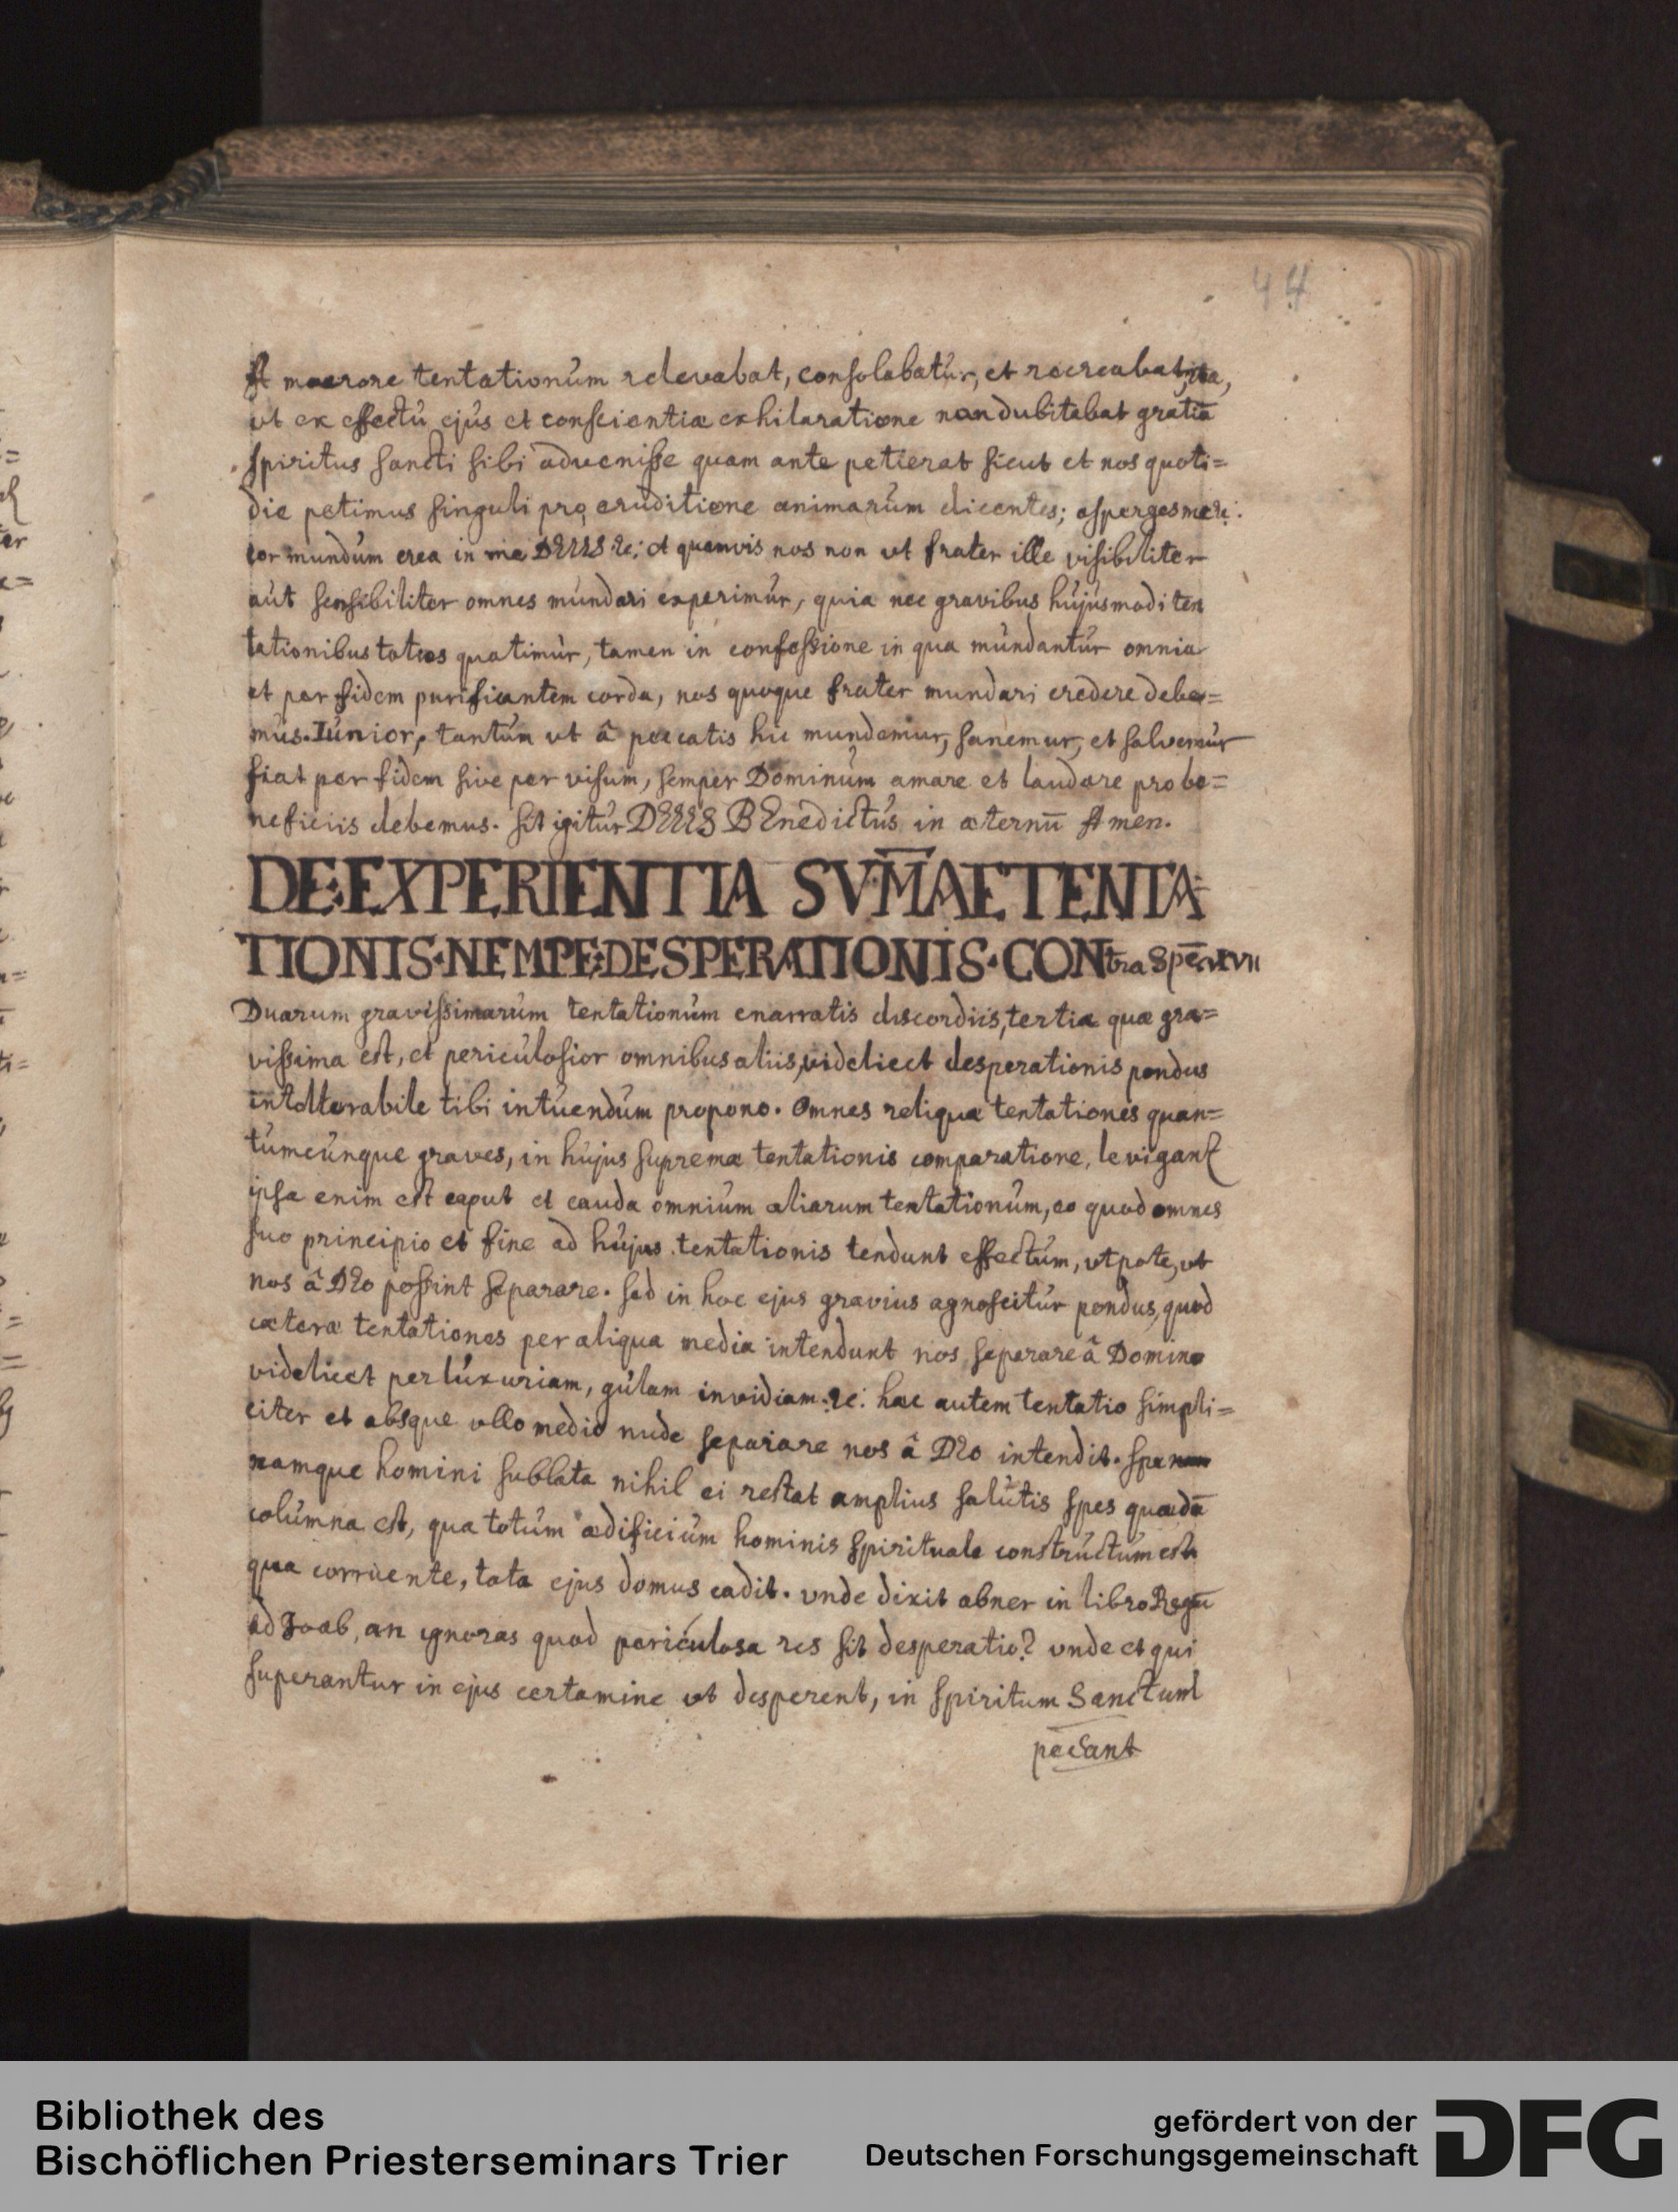 44
A maerore tentationum relevabat, consolabatur, et recreabat, ita,
ut ex effectu ejus et conscientiæ exhilaratione non dubitabat gratiā
Spiritus Sancti sibi advenisse quam ante petierat sicut et nos quoti=
die petimus singuli pro eruditione animarum dicentes; asperges me &c:
cor mundum crea in me DEUS &c: et quamvis nos non ut frater ille visibiliter
aut sensibiliter omnes mundari experimur, quia nec gravibus hujusmodi ten
tationibus toties quatimur, tamen in confessione in qua mundantur omnia
et per fidem purificantem corda, nos quoque frater mundari credere debe=
mus. Iunior, tantum ut â peccatis hic mundemur, sanemur, et salvemur
fiat per fidem sive per visum, semper Dominum amare et laudare pro be=
neficiis debemus. sit igitur DEUS BEnedictus in æternū Amen.
DE·EXPERIENTIA SVM̄AE TENTA
TIONIS·NEMPE·DESPERATIONIS·CONtra Spē. XVII
Duarum gravissimarum tentationum enarratis discordiis, tertia quæ gra=
vissima est, et periculosior omnibus aliis, videlicet desperationis pondus
intollerabile tibi intuendum propono. Omnes reliquæ tentationes quan=
tumcunque graves, in hujus supremæ tentationis comparatione, levigant
ipsa enim est caput et cauda omnium aliarum tentationum, eo quod omnes
suo principio et fine ad hujus tentationis tendunt effectum, utpote, ut
nos â DEo possint separare. sed in hoc ejus gravius agnoscitur pondus, quod
cæteræ tentationes per aliqua media intendunt nos separare â Domino
videlicet per luxuriam, gulam invidiam &c: hæc autem tentatio simpli=
citer et absque ullo medio nude separare nos â DEo intendit. spe
namque homini sublata nihil ei restat amplius salutis spes quædā
columna est, qua totum ædificium hominis spirituale constructum est
qua corruente, tota ejus domus cadit. unde dixit abner in libro Regū
ad Joab, an ignoras quod periculosa res sit desperatio? unde et qui
superantur in ejus certamine ut desperent, in spiritum Sanctum
peccant
Bibliothek des
Bischöflichen Priesterseminars Trier
gefördert von der
Deutschen Forschungsgemeinschaft
DFG